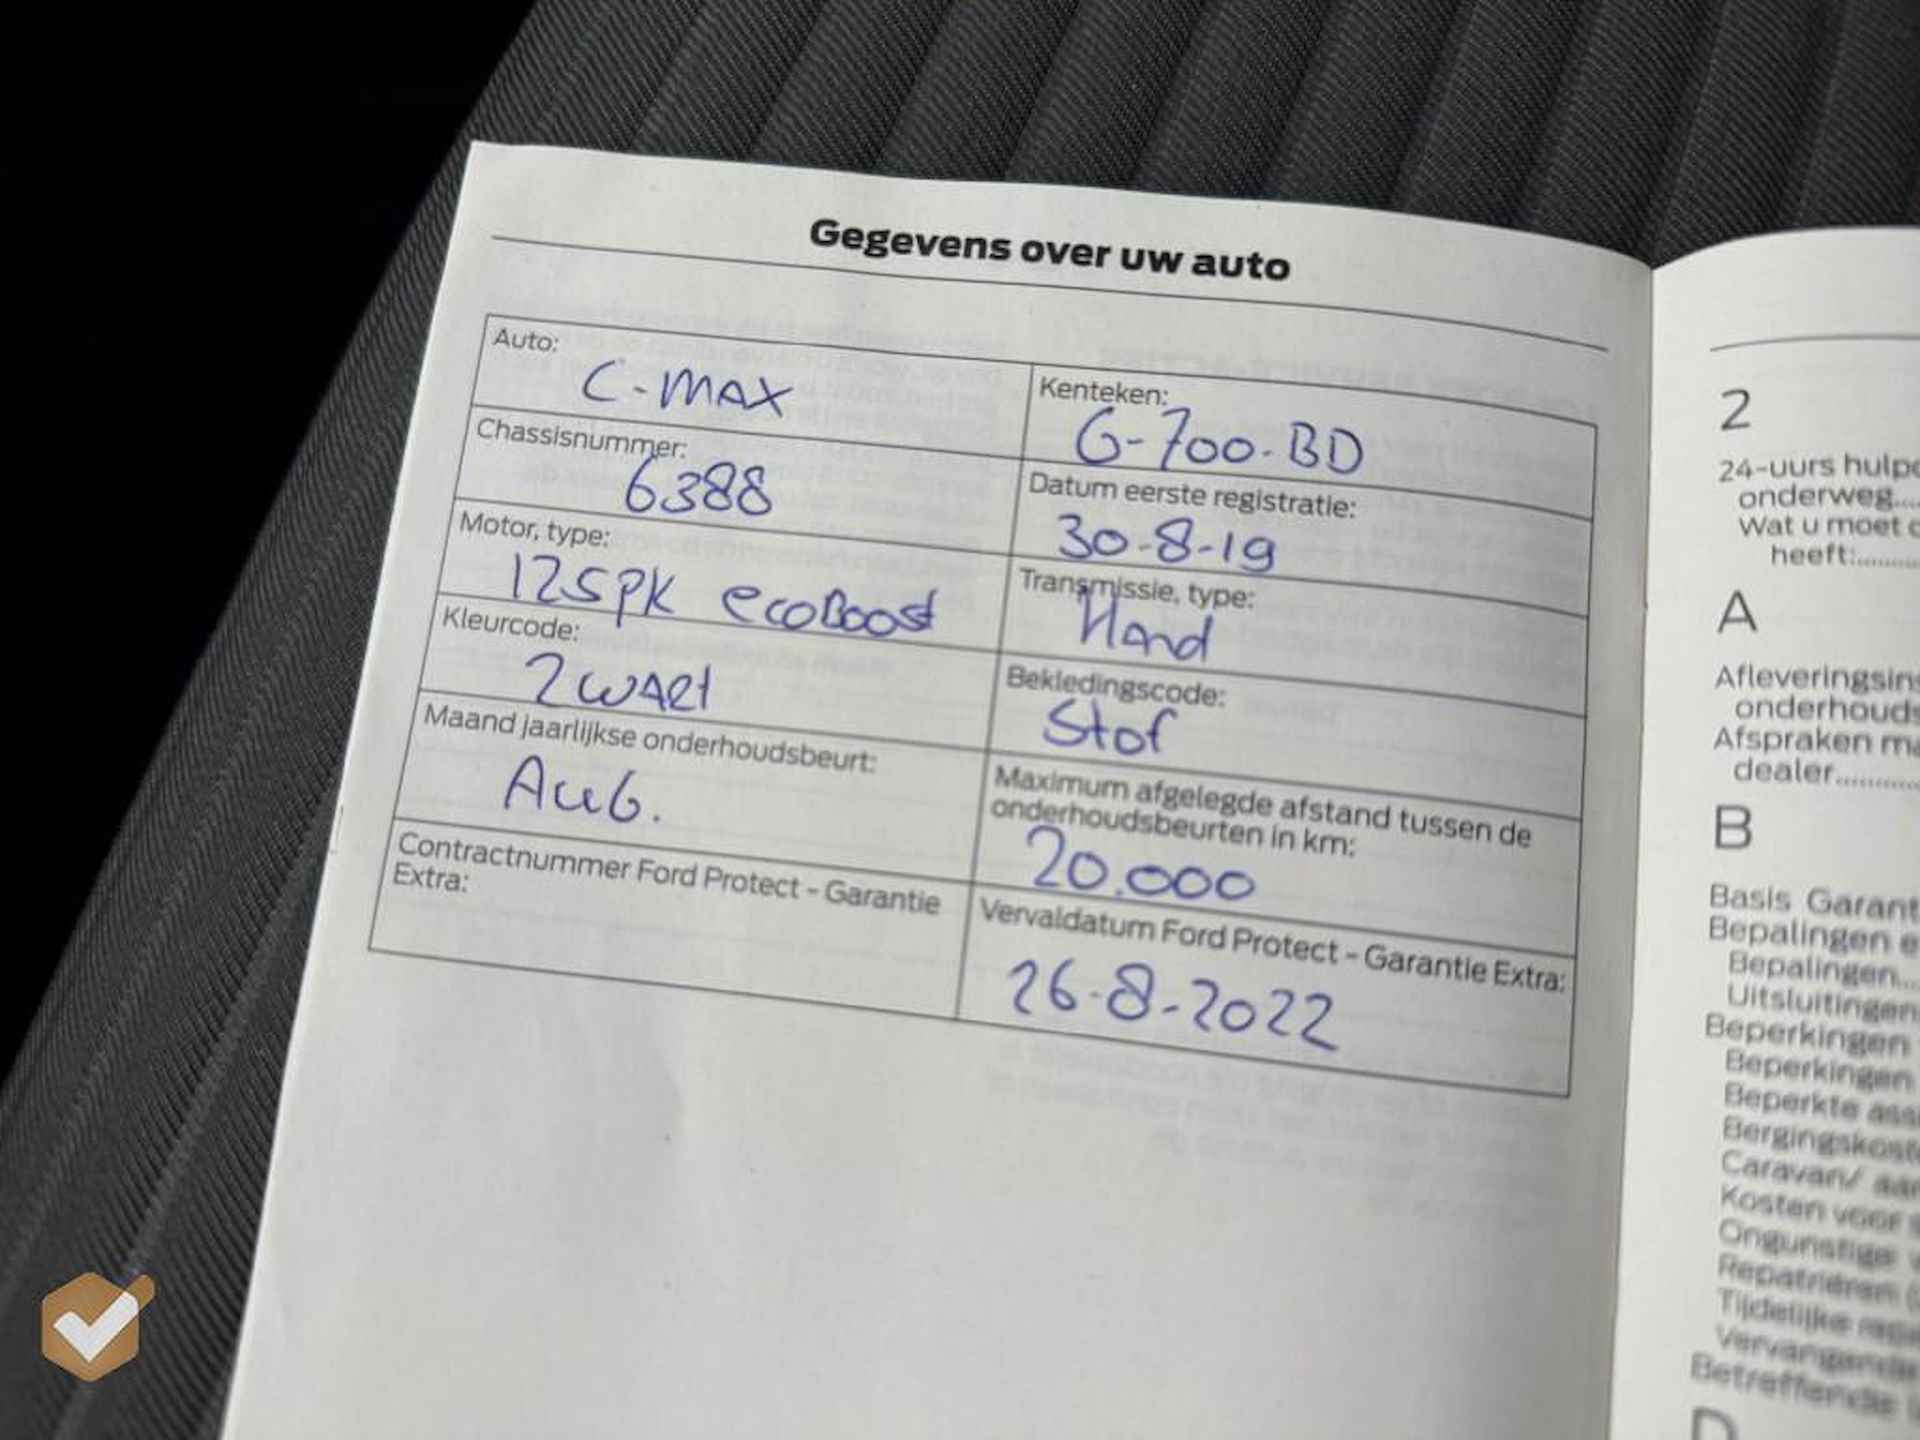 Gegevens over uw auto
Auto:
C-MAX
Kenteken:
G-700-BD
Chassisnummer:
6388
Datum eerste registratie:
30-8-19
Motor, type:
125PK ecoBoost
Transmissie, type:
Hand
Kleurcode:
ZWART
Bekledingscode:
Stof
Maand jaarlijkse onderhoudsbeurt:
AUG.
Maximum afgelegde afstand tussen de
onderhoudsbeurten in km:
20.000
Contractnummer Ford Protect - Garantie
Extra:
Vervaldatum Ford Protect - Garantie Extra:
26-8-2022
2
24-uurs
onderweg....
Wat u moet
heeft:..........
A
onderhouds
Afspraken
dealer............
B
Basis Garant
Bepalingen e
Bepalingen....
Uitsluitingen
Beperkingen
Beperkingen
Beperkte
Caravan/
Kosten voor
Ongunstige
Repatriëren
Tijdelijke
Vervangende
Betreffende
D